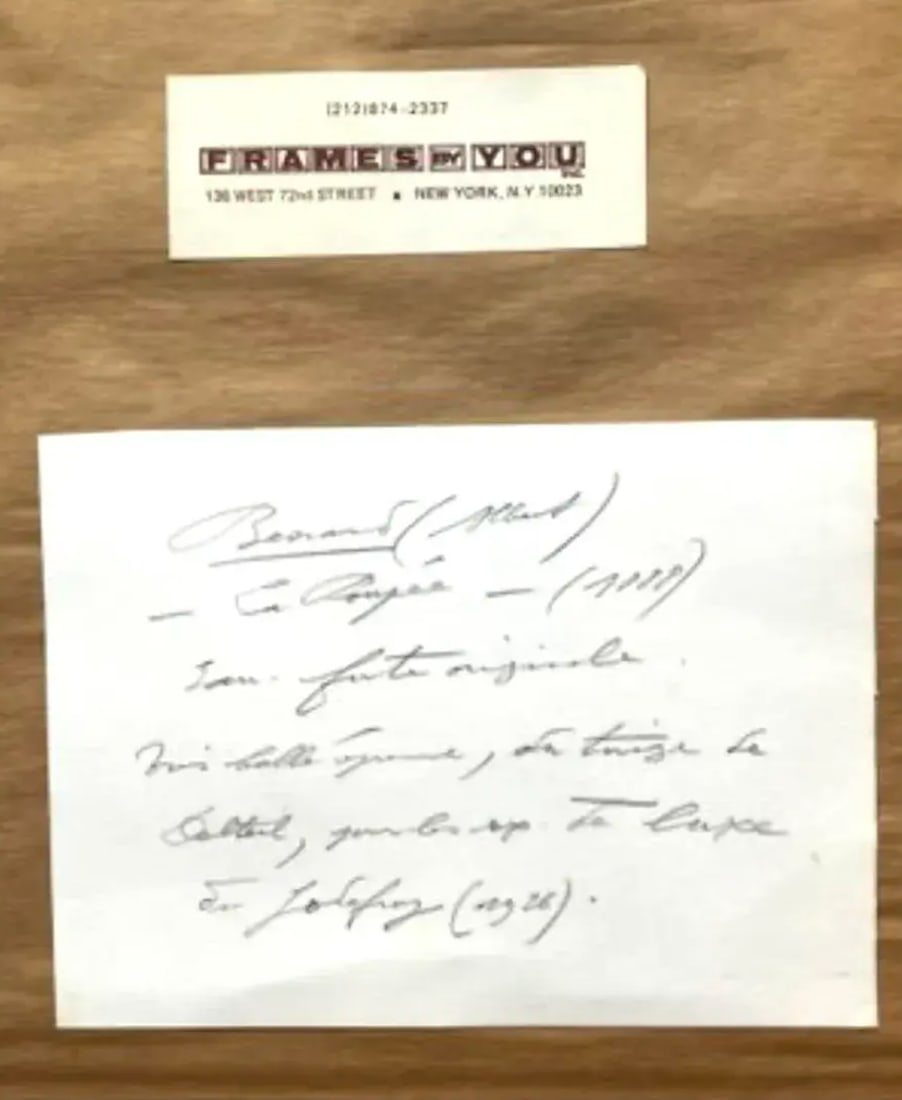 (212)874-2337
FRAMES BY YOU INC.
136 WEST 72nd STREET ▪ NEW YORK, N.Y 10023
Besnard (Albert)
— La Poupée — (1888)
Eau-forte originale.
Très belle épreuve, du tirage de
Delteil, pour les ex. de luxe
du Godefroy (1926).